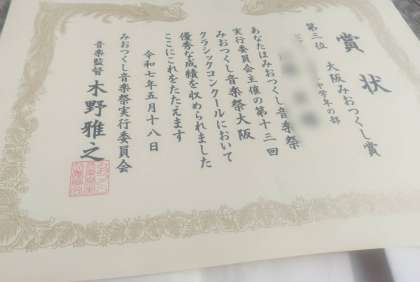 賞状
第三位 大阪みおつくし賞
中学年の部
あなたはみおつくし音楽祭
実行委員会主催の第十三回
みおつくし音楽祭大阪
クラシックコンクールにおいて
優秀な成績を収められました
ここにこれをたたえます
令和七年五月十八日
みおつくし音楽祭実行委員会
音楽監督 木野雅之